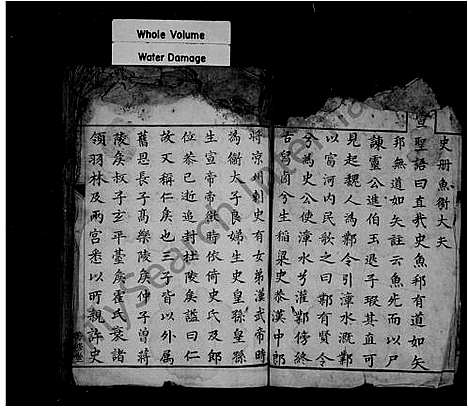 Whole Volume
Water Damage
史册魚衛大夫
聖語曰直哉史魚邦有道如矢
邦無道如矢註云魚死而以尸
諫靈公進伯玉退子瑕其直可
見起魏人為鄴令引漳水溉鄴
以富河内民歌之曰鄴有賢令
兮為史公使漳水兮灌鄴傍終
古舄鹵兮生稲粱史恭漢中郎
將涼州刺史有女弟漢武帝時
為衛太子良娣生史皇孫皇孫
生宣帝帝㣲時依倚史氏及即
位恭已逝追封杜陵矦謚曰仁
故又稱仁矦也三子皆以外属
舊恩長子髙樂陵矦仲子曾蔣
陵矦叔子玄平臺矦霍氏衰諸
領羽林及两宫悉以所親許史
MySearch International